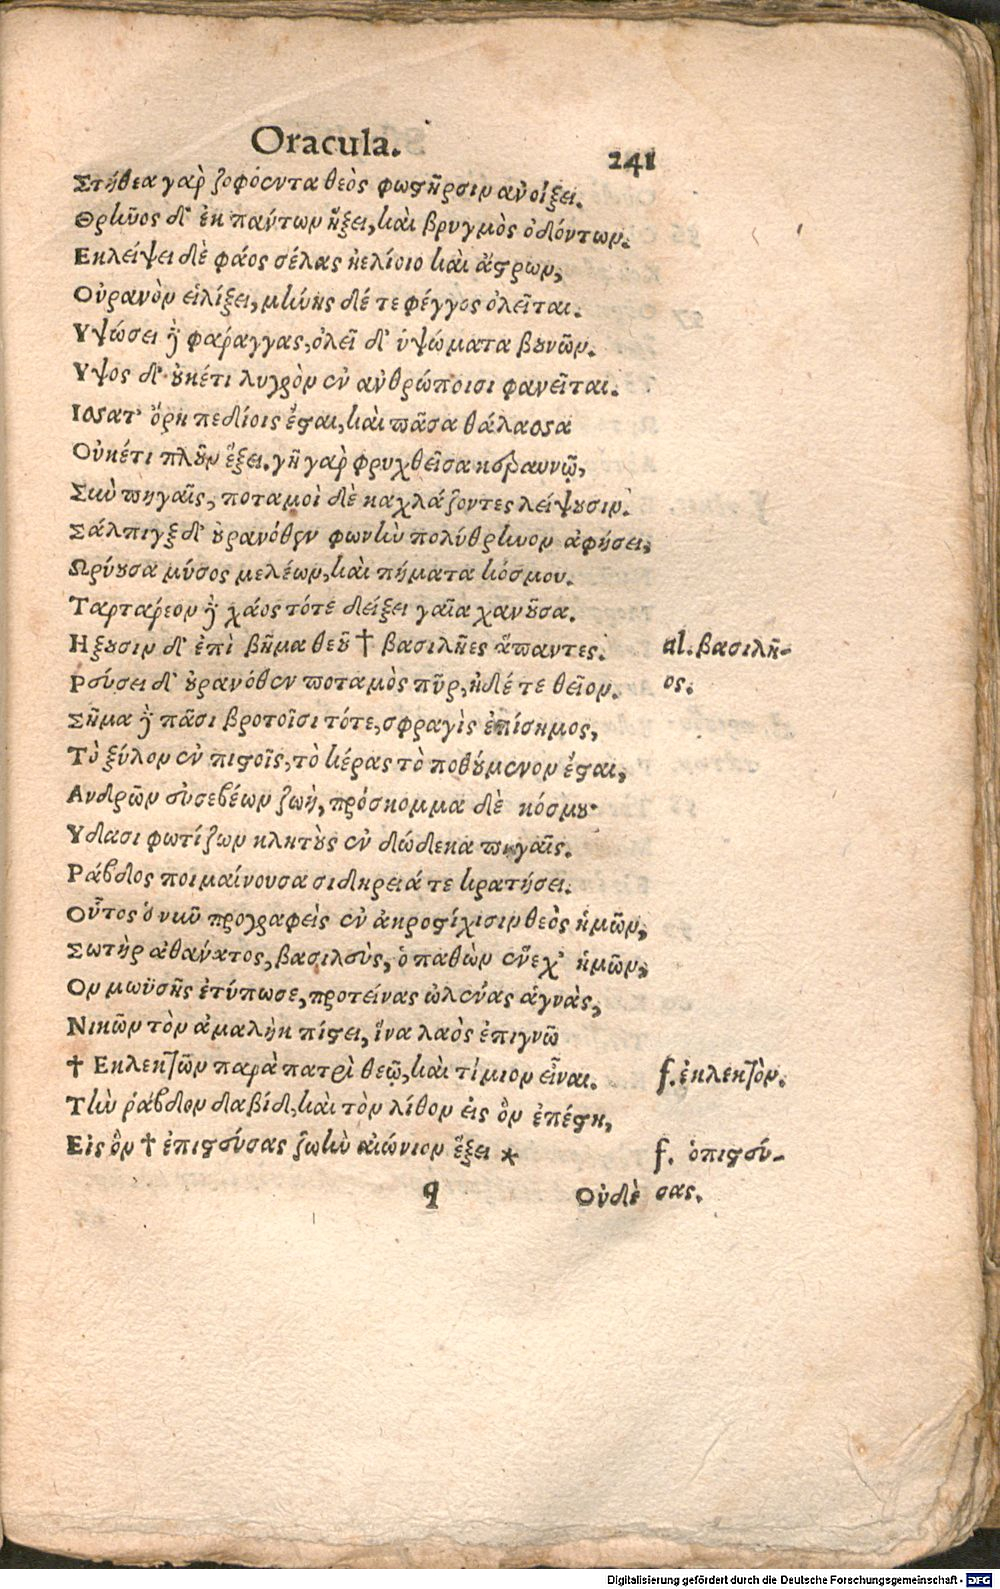 Oracula. 241
Στήθεα γαρ ζοφόεντα θεὸς φωστῆρσιν ανοίξει.
Θρῆνος δ' ἐκ παντων ἥξει, καὶ βρυγμὸς ὀδόντων.
Εκλείψει δὲ φάος σέλας ἠελίοιο καὶ ἄστρων,
Οὐρανὸν εἱλίξει, μήνης δέ τε φέγγος ὀλεῖται.
Υψώσει ἢ φαράγγας, ὀλεῖ δ' ὑψώματα βουνῶν.
Υψος δ' οὐκέτι λυγρὸν ἐν ἀνθρώποισι φανεῖται.
Ισσατ' ὄρη πεδίοις ἔσται, καὶ πᾶσα θάλασσα
Οὐκέτι πλοῦν ἕξει. γῆ γαρ φρυχθεῖσα κεραυνῷ,
Σὺν πηγαῖς, ποταμοὶ δὲ καχλάζοντες λείψουσιν.
Σάλπιγξ δ' οὐρανόθεν φωνὴν πολύθρηνον ἀφήσει,
Ωρύουσα μύσος μελέων, καὶ πήματα κόσμου.
Ταρταρεον ἢ χάος τότε δείξει γαῖα χανοῦσα.
Ηξουσιν δ' ἐπὶ βῆμα θεοῦ † βασιλῆες ἅπαντες. al. βασιλῆ-
Ρεύσει δ' οὐρανόθεν ποταμὸς πῦρ, ἠδέ τε θεῖον. ος.
Σῆμα ἢ πᾶσι βροτοῖσι τότε, σφραγὶς ἐπίσημος,
Τὸ ξύλον ἐν πιστοῖς, τὸ κέρας τὸ ποθούμενον ἔσται,
Ανδρῶν εὐσεβέων ζωὴ, πρόσκομμα δὲ κόσμου·
Υδασι φωτίζων κλητοὺς ἐν δώδεκα πηγαῖς.
Ράβδος ποιμαίνουσα σιδηρειά τε κρατήσει.
Οὗτος ὁ νῦν προγραφεὶς ἐν ἀκροστίχισιν θεὸς ἡμῶν,
Σωτὴρ ἀθανατος, βασιλεὺς, ὁ παθὼν ἕνεχ' ἡμῶν,
Ον μωϋσῆς ἐτύπωσε, προτείνας ὠλένας ἁγνὰς,
Νικῶν τὸν ἀμαλὴκ πίστει, ἵνα λαὸς ἐπιγνῷ
† Εκλεκτῶν παρὰ πατρὶ θεῷ, καὶ τίμιον εἶναι. f. ἐκλεκτὸν.
Τὴν ῥάβδον δαβίδ, καὶ τὸν λίθον εἰς ὃν ἐπέστη,
Εἰς ὃν † ἐπιστεύσας ζωὴν αἰώνιον ἕξει * f. ὁπιστεύ-
q Οὐδὲ σας.
Digitalisierung gefördert durch die Deutsche Forschungsgemeinschaft - DFG